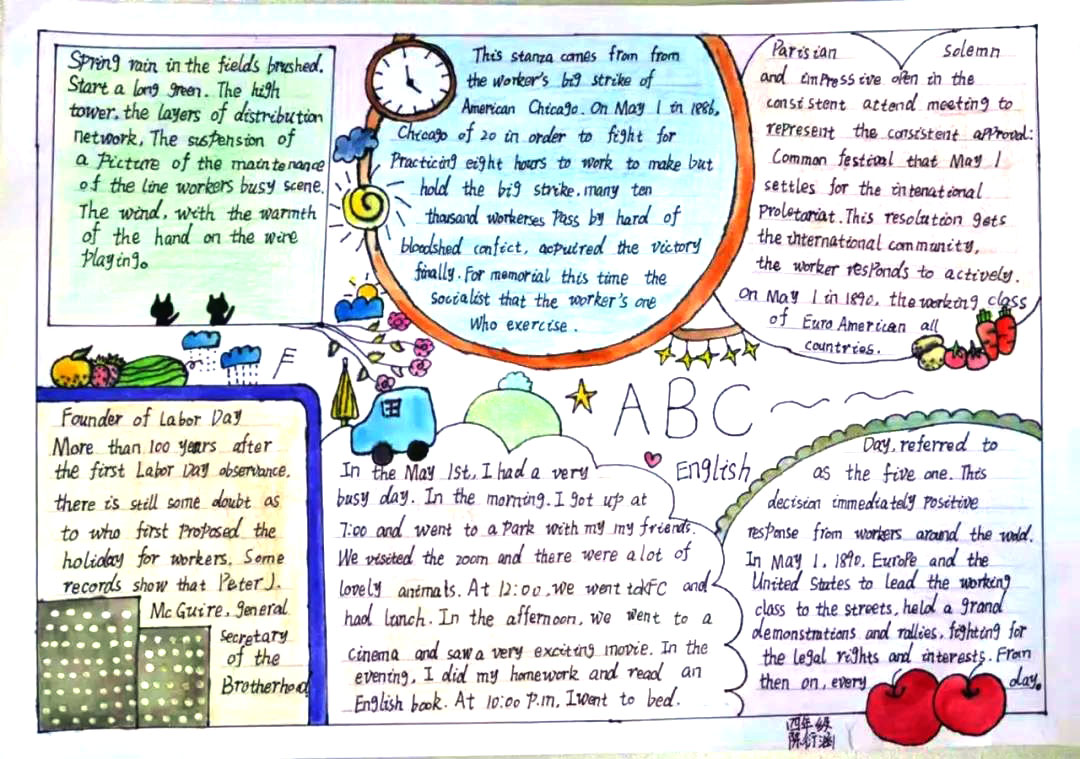 Spring rain in the fields brushed.
Start a long green. The high
tower, the layers of distribution
network, The suspension of
a picture of the maintenance
of the line workers busy scene.
The wind, with the warmth
of the hand on the wire
playing。
This stanza comes from from
the worker's big strike of
American Chicago. On May 1 in 1886,
Chicago of 20 in order to fight for
Practicing eight hours to work to make but
hold the big strike, many ten
thousand workerses pass by hard of
bloodshed confict, acpuired the victory
finally. For memorial this time the
socialist that the worker's one
who exercise.
Parisian solemn
and impressive often in the
consistent attend meeting to
represent the consistent approval:
Common festival that May 1
settles for the intenational
Proletariat. This resolution gets
the international community,
the worker responds to actively.
On May 1 in 1890, the working class
of Euro American all
countries.
Founder of Labor Day
More than 100 years after
the first Labor Day observance,
there is still some doubt as
to who first proposed the
holiday for workers. Some
records show that Peter J.
Mc Guire, general
secretary
of the
Brotherhood
F
ABC
English
In the May 1st, I had a very
busy day. In the morning. I got up at
7:00 and went to a park with my my friends.
We visited the zoom and there were a lot of
lovely animals. At 12:00, we went to KFC and
had lunch. In the affernoon, we went to a
cinema and saw a very exciting movie. In the
evening, I did my homework and read an
English book. At 10:00 p.m, I went to bed.
Day, referred to
as the five one. This
decision immediately positive
response from workers around the world.
In May 1, 1890, Europe and the
United States to lead the working
class to the streets, held a grand
demonstrations and rallies, fighting for
the legal rights and interests. From
then on, every day。
四年级
陈衍涵